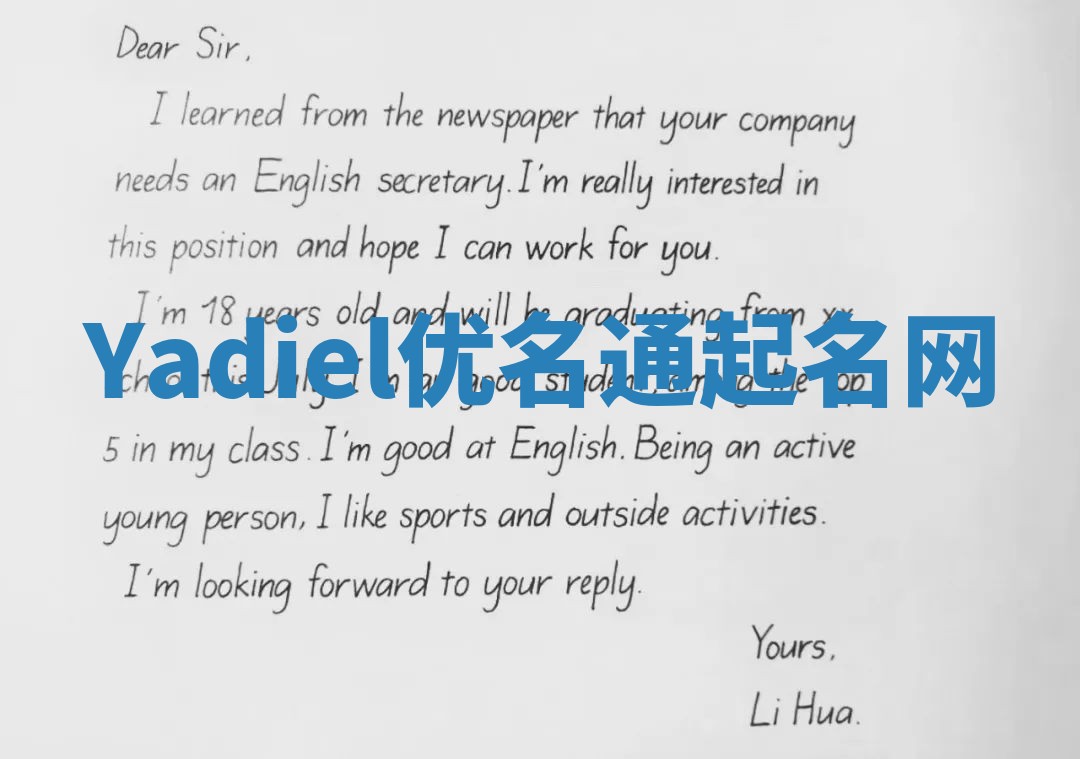 Dear Sir,
I learned from the newspaper that your company
needs an English secretary. I'm really interested in
this position and hope I can work for you.
I'm 18 years old and will be graduating from xx
Yadiel优名通起名网
this July. I'm a good student, among the top
5 in my class. I'm good at English. Being an active
young person, I like sports and outside activities.
I'm looking forward to your reply.
Yours,
Li Hua.